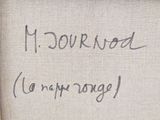 M. JOURNOD
(la nappe rouge)